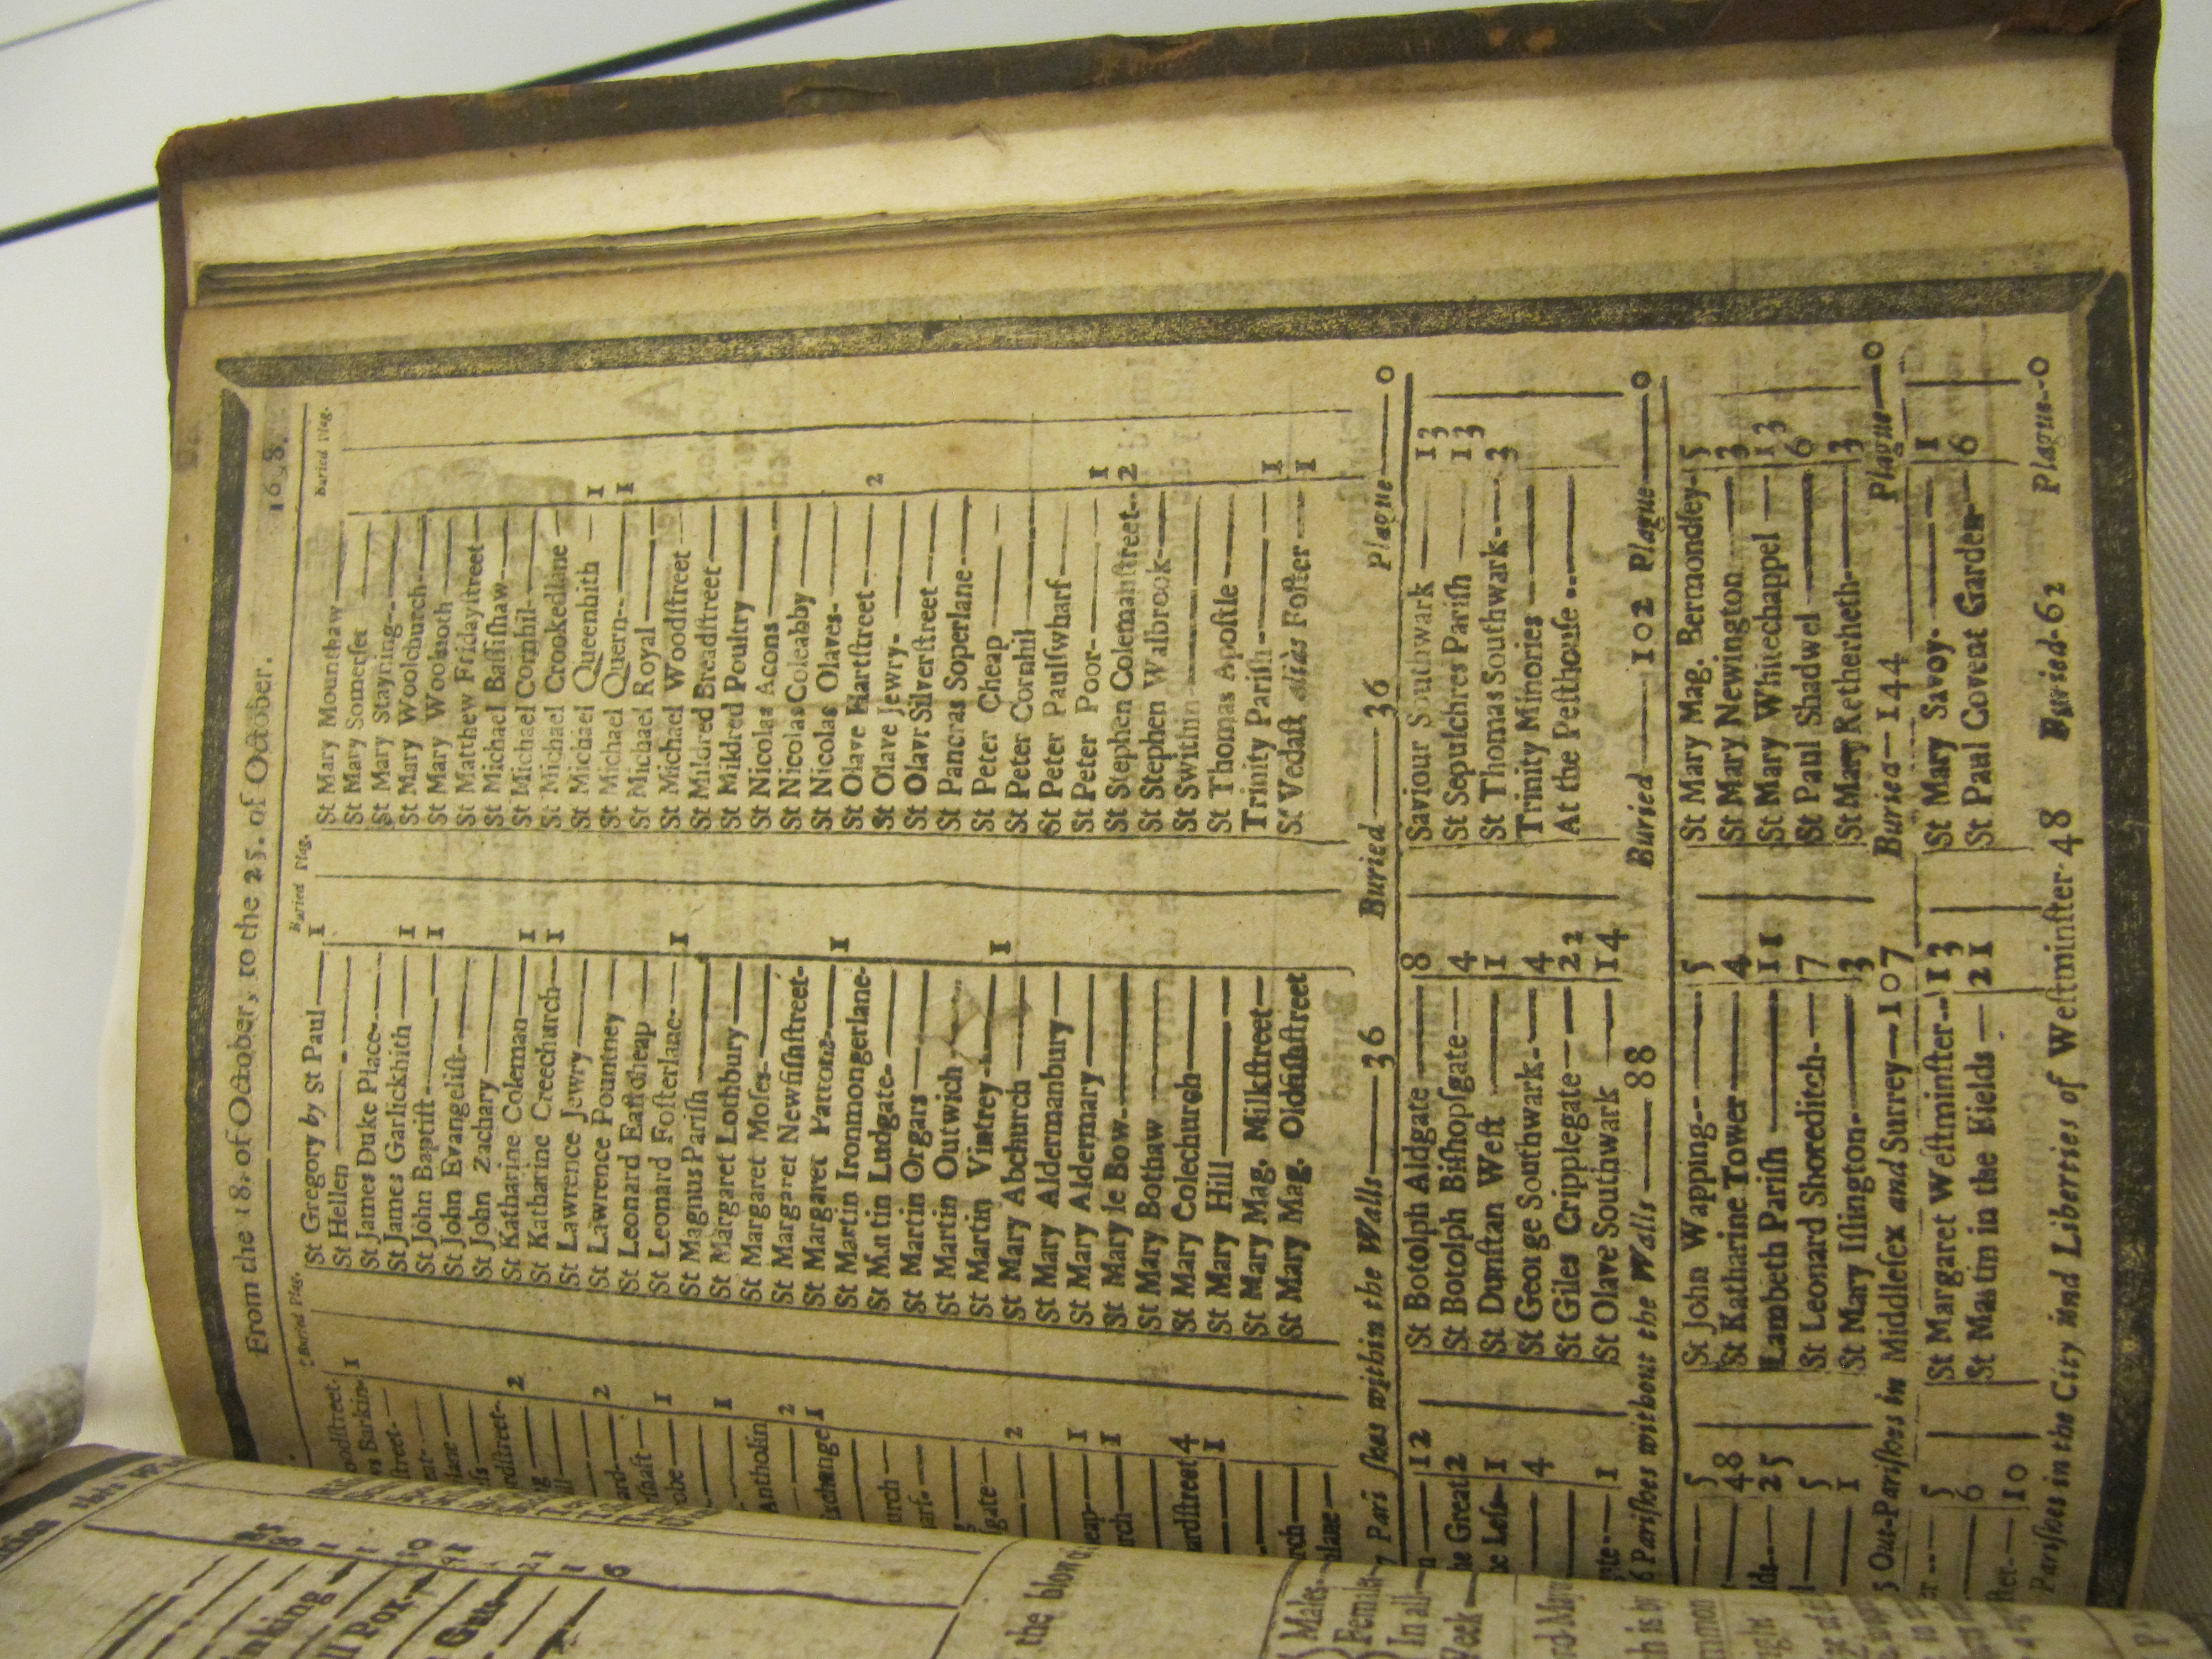 From the 18. of October, to the 25. of October. 16 8.
Buried Plag. Buried Plag. Buried Plag.
odstreet- St Gregory by St Paul— 1 St Mary Mounthaw—
s Barkin- 1 St Hellen — St Mary Somerset
street- St James Duke Place— St Mary Stayning—
eat- St James Garlickhith— 1 St Mary Woolchurch—
lane — St John Baptist— 1 St Mary Woolnoth—
St John Evangelist— St Matthew Fridaystreet—
rdstreet- 2 St John Zachary— St Michael Bassishaw—
St Katharine Coleman— 1 St Michael Cornhil—
St Katharine Creechurch— 1 St Michael Crookedlane—
ard— 2 St Lawrence Jewry— St Michael Queenhith — 1
rshaft— St Lawrence Pountney— St Michael Quern— 1
obe— 1 St Leonard Eastcheap— St Michael Royal—
St Leonard Fosterlane— 1 St Michael Woodstreet
— 1 St Magnus Parish — St Mildred Breadstreet—
Antholin St Margaret Lothbury— St Mildred Poultry—
— 2 St Margaret Moses— St Nicolas Acons—
Exchange 1 St Margaret Newfishstreet- St Nicolas Coleabby—
St Margaret Pattons— St Nicolas Olaves—
urch — St Martin Ironmongerlane- 1 St Olave Hartstreet— 2
St M.n tin Ludgate— St Olave Jewry—
St Martin Orgars— St Olavr Silverstreet—
gate— St Martin Outwich— St Pancras Soperlane—
— 2 St Martin Vintrey— St Peter Cheap—
St Mary Abchurch — 1 St Peter Cornhil—
eap— 1 St Mary Aldermanbury— St Peter Paulswharf—
rch— 1 St Mary Aldermary— St Peter Poor— 1
St Mary le Bow— St Stephen Colemanstreet— 2
St Mary Bothaw St Stephen Walbrook—
ardstreet 4 St Mary Colechurch— St Swithin—
— 1 St Mary Hill— St Thomas Apostle —
rch— St Mary Mag. Milkstreet— Trinity Parish— 1
lane — St Mary Mag. Oldfishstreet St Vedast aliàs Foster— 1
7 Pari shes within the Walls— 36 Buried— 36 Plague— 0
— 12 St Botolph Aldgate — 8 Saviour Southwark — 13
he Great 2 St Botolph Bishopsgate— 4 St Sepulchres Parish — 13
e Less- 1 St Dunstan West — 1 St Thomas Southwark— 3
— 4 St George Southwark— 4 Trinity Minories —
St Giles Cripplegate— 22 At the Pesthouse ..—
ate— 1 St Olave Southwark — 14
6 Parishes without the Walls — 88 Buried — 102 Plague— 0
— 5 St John Wapping— 5 St Mary Mag. Bermondsey- 5
— 48 St Katharine Tower— 4 St Mary Newington— 3
lds— 25 Lambeth Parish — 11 St Mary Whitechappel — 13
— 5 St Leonard Shoreditch— 7 St Paul Shadwel — 6
— 1 St Mary Islington— 3 St Mary Retherheth— 3
5 Out-Parishes in Middlesex and Surrey—107 Buried— 144 Plague— 0
er— 5 St Margaret Westminster— 13 St Mary Savoy— 1
— 6 St Martin in the Fields — 21 St Paul Covent Garden— 6
ster— 10
Parishes in the City and Liberties of Westminster- 48 Buried- 62 Plague-- 0
nking
ll Pox
Guts
the blood
Males
Females
In all
Week